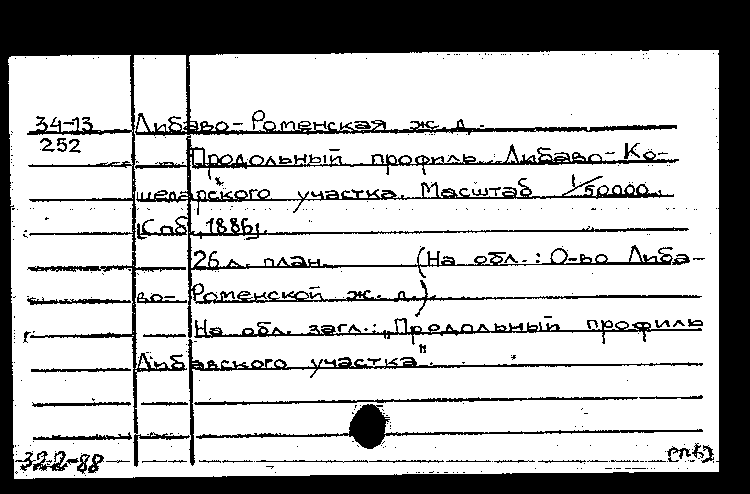 34-13 Либаво-Роменская ж. д.
252
Продольный профиль Либаво-Ко-
шедарского участка. Масштаб 1/50000.
[Спб., 1886].
26 л. план. (На обл.: О-во Либа-
во-Роменской ж. д.).
На обл. загл.: „Продольный профиль
Либавского участка".
322-88